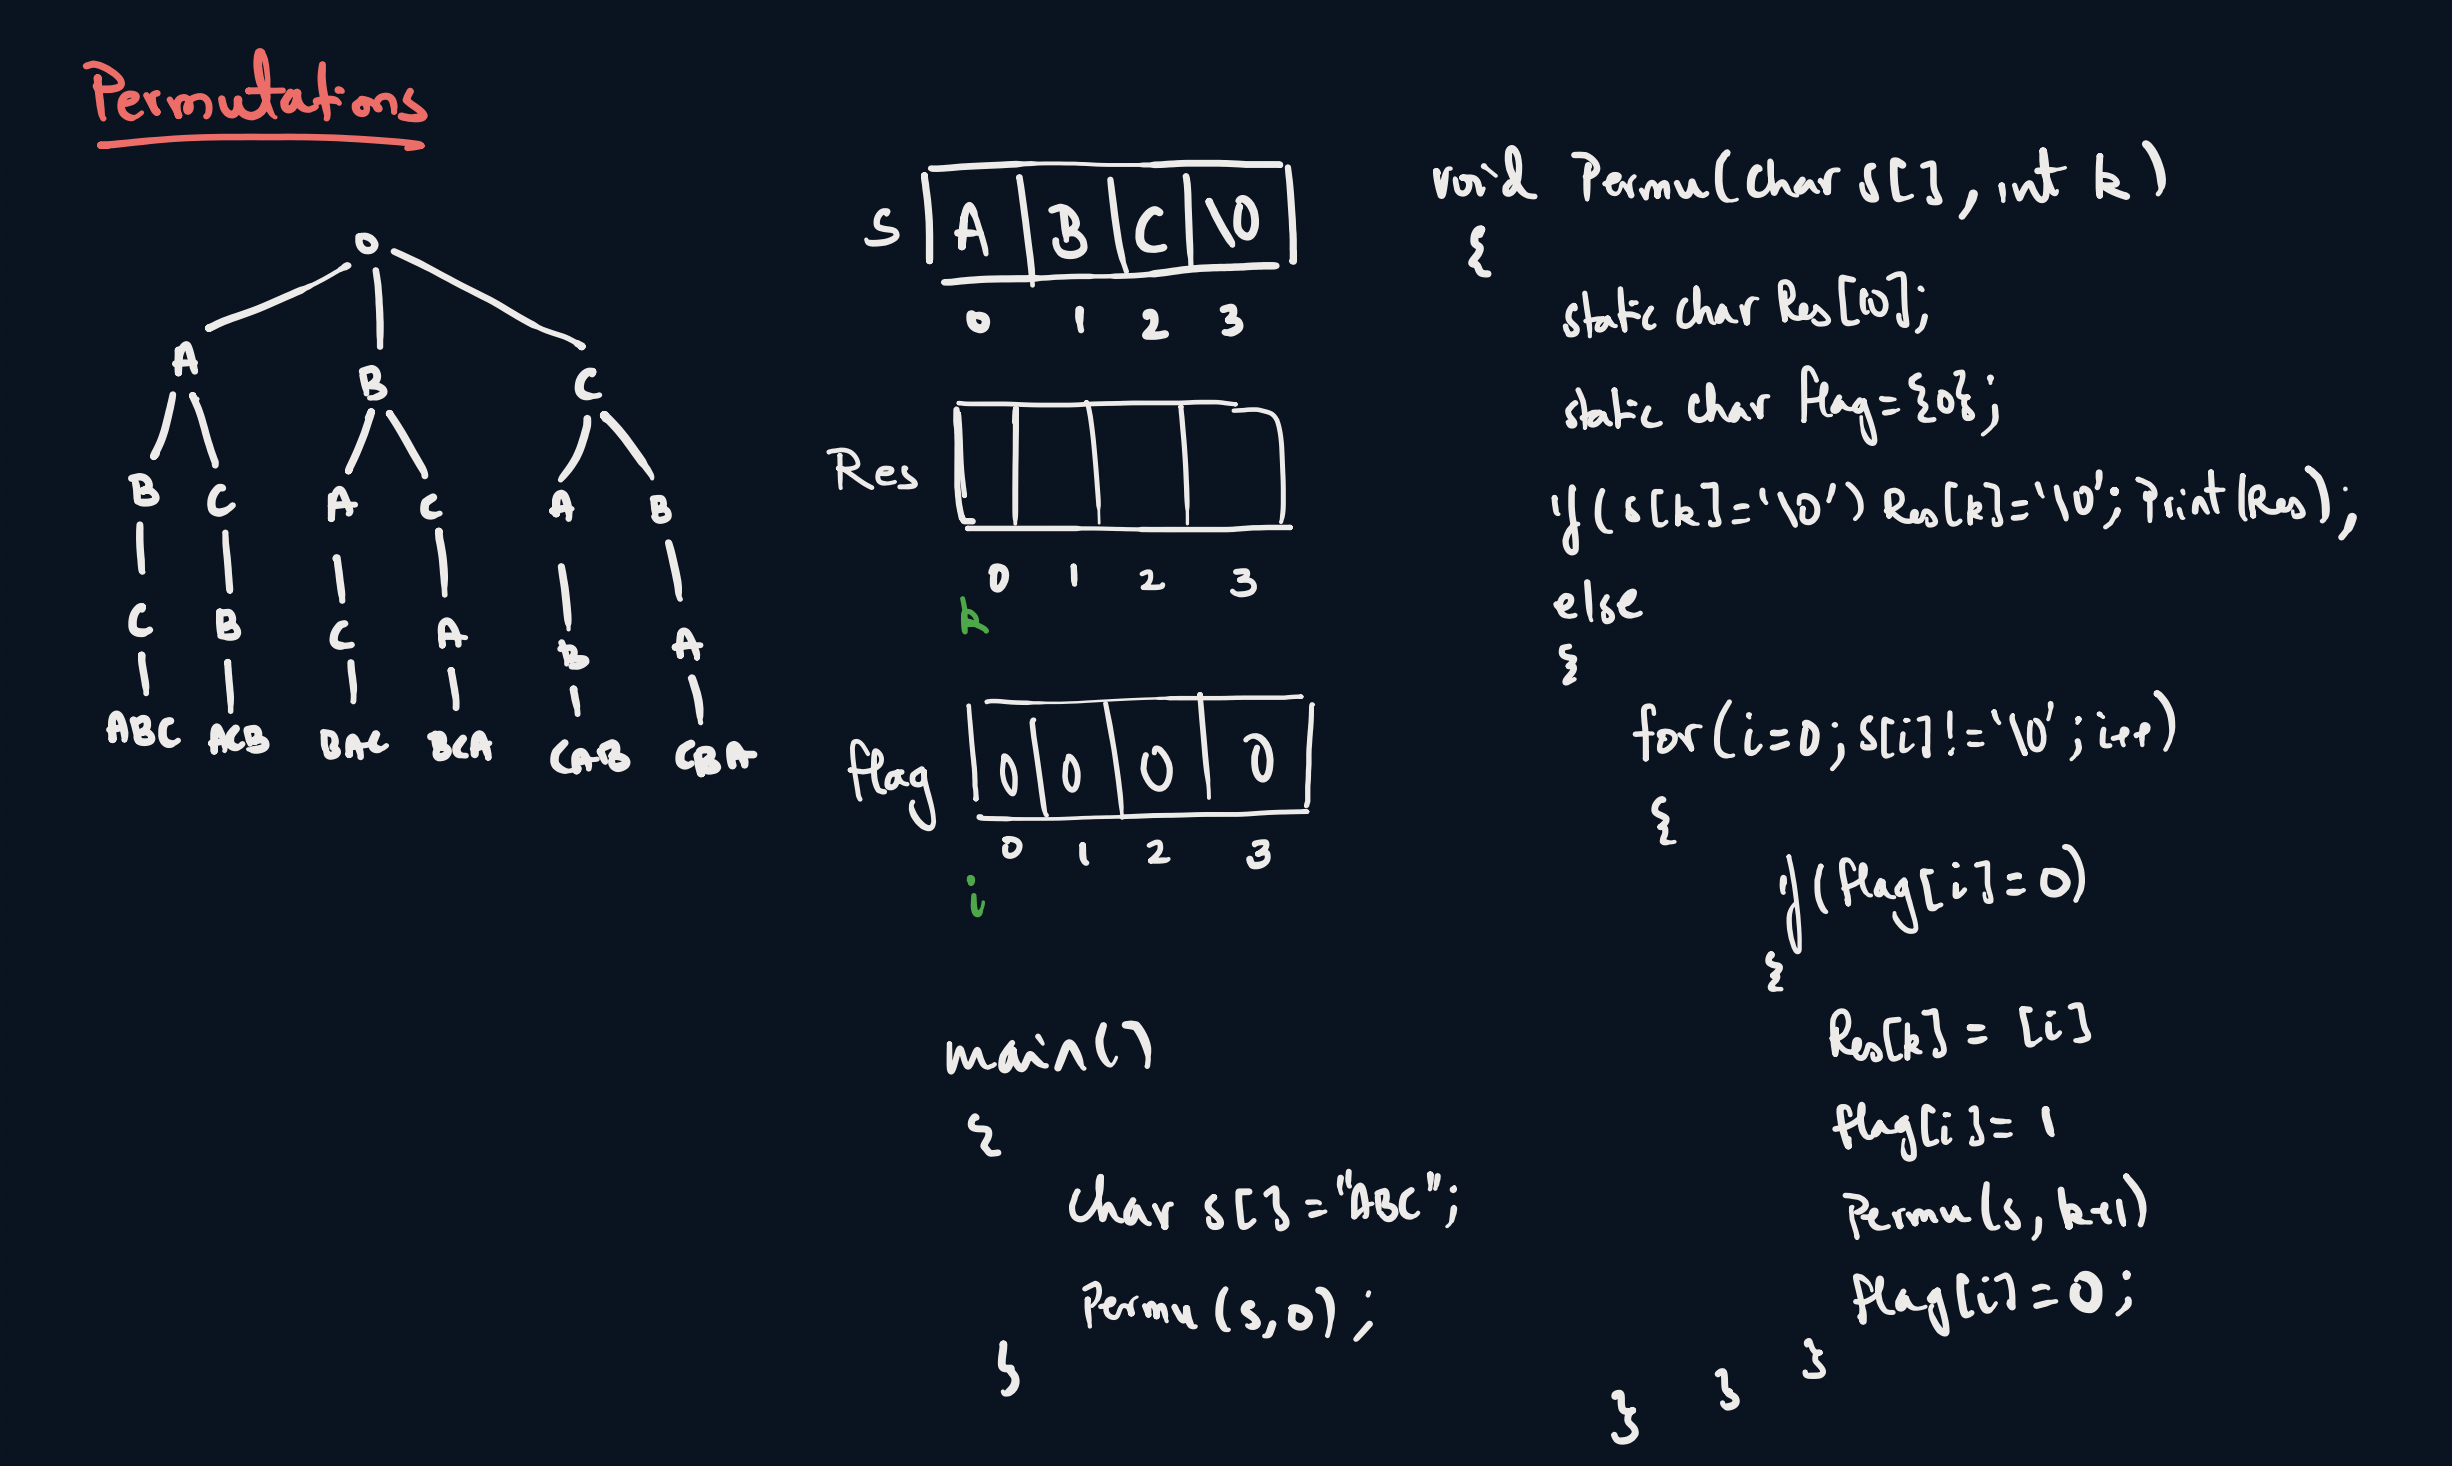 Permutations
O
A B C
B C A C A B
C B C A B A
ABC ACB BAC BCA CAB CBA
S A B C \0
0 1 2 3
Res
0 1 2 3
k
flag 0 0 0 0
0 1 2 3
i
main()
{
char s[]="ABC";
Permu(s,0);
}
void Permu(char s[], int k)
{
static char Res[10];
static char flag={0};
if(s[k]='\0') Res[k]='\0'; Print(Res);
else
{
for(i=0;s[i]!='\0';i++)
{
if(flag[i]=0)
{
Res[k]=[i]
flag[i]=1
Permu(s,k+1)
flag[i]=0;
}
}
}